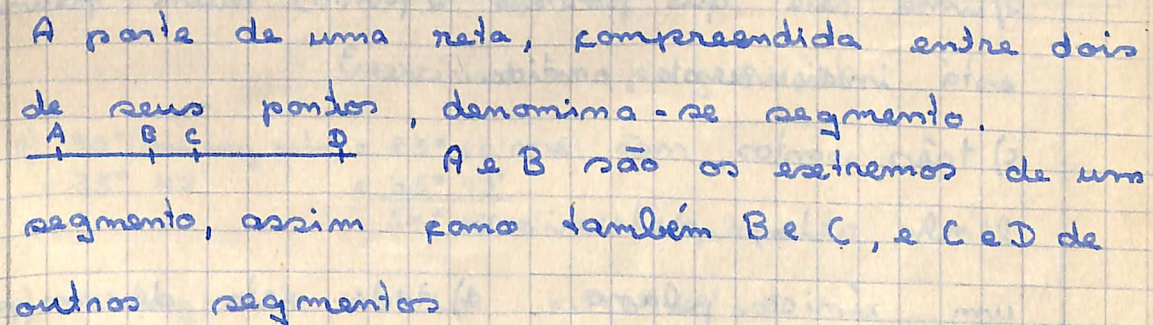 A parte de uma reta, compreendida entre dois
de seus pontos, denomina-se segmento.
A B C D
A e B são os extremos de um
segmento, assim como também B e C, e C e D de
outros segmentos